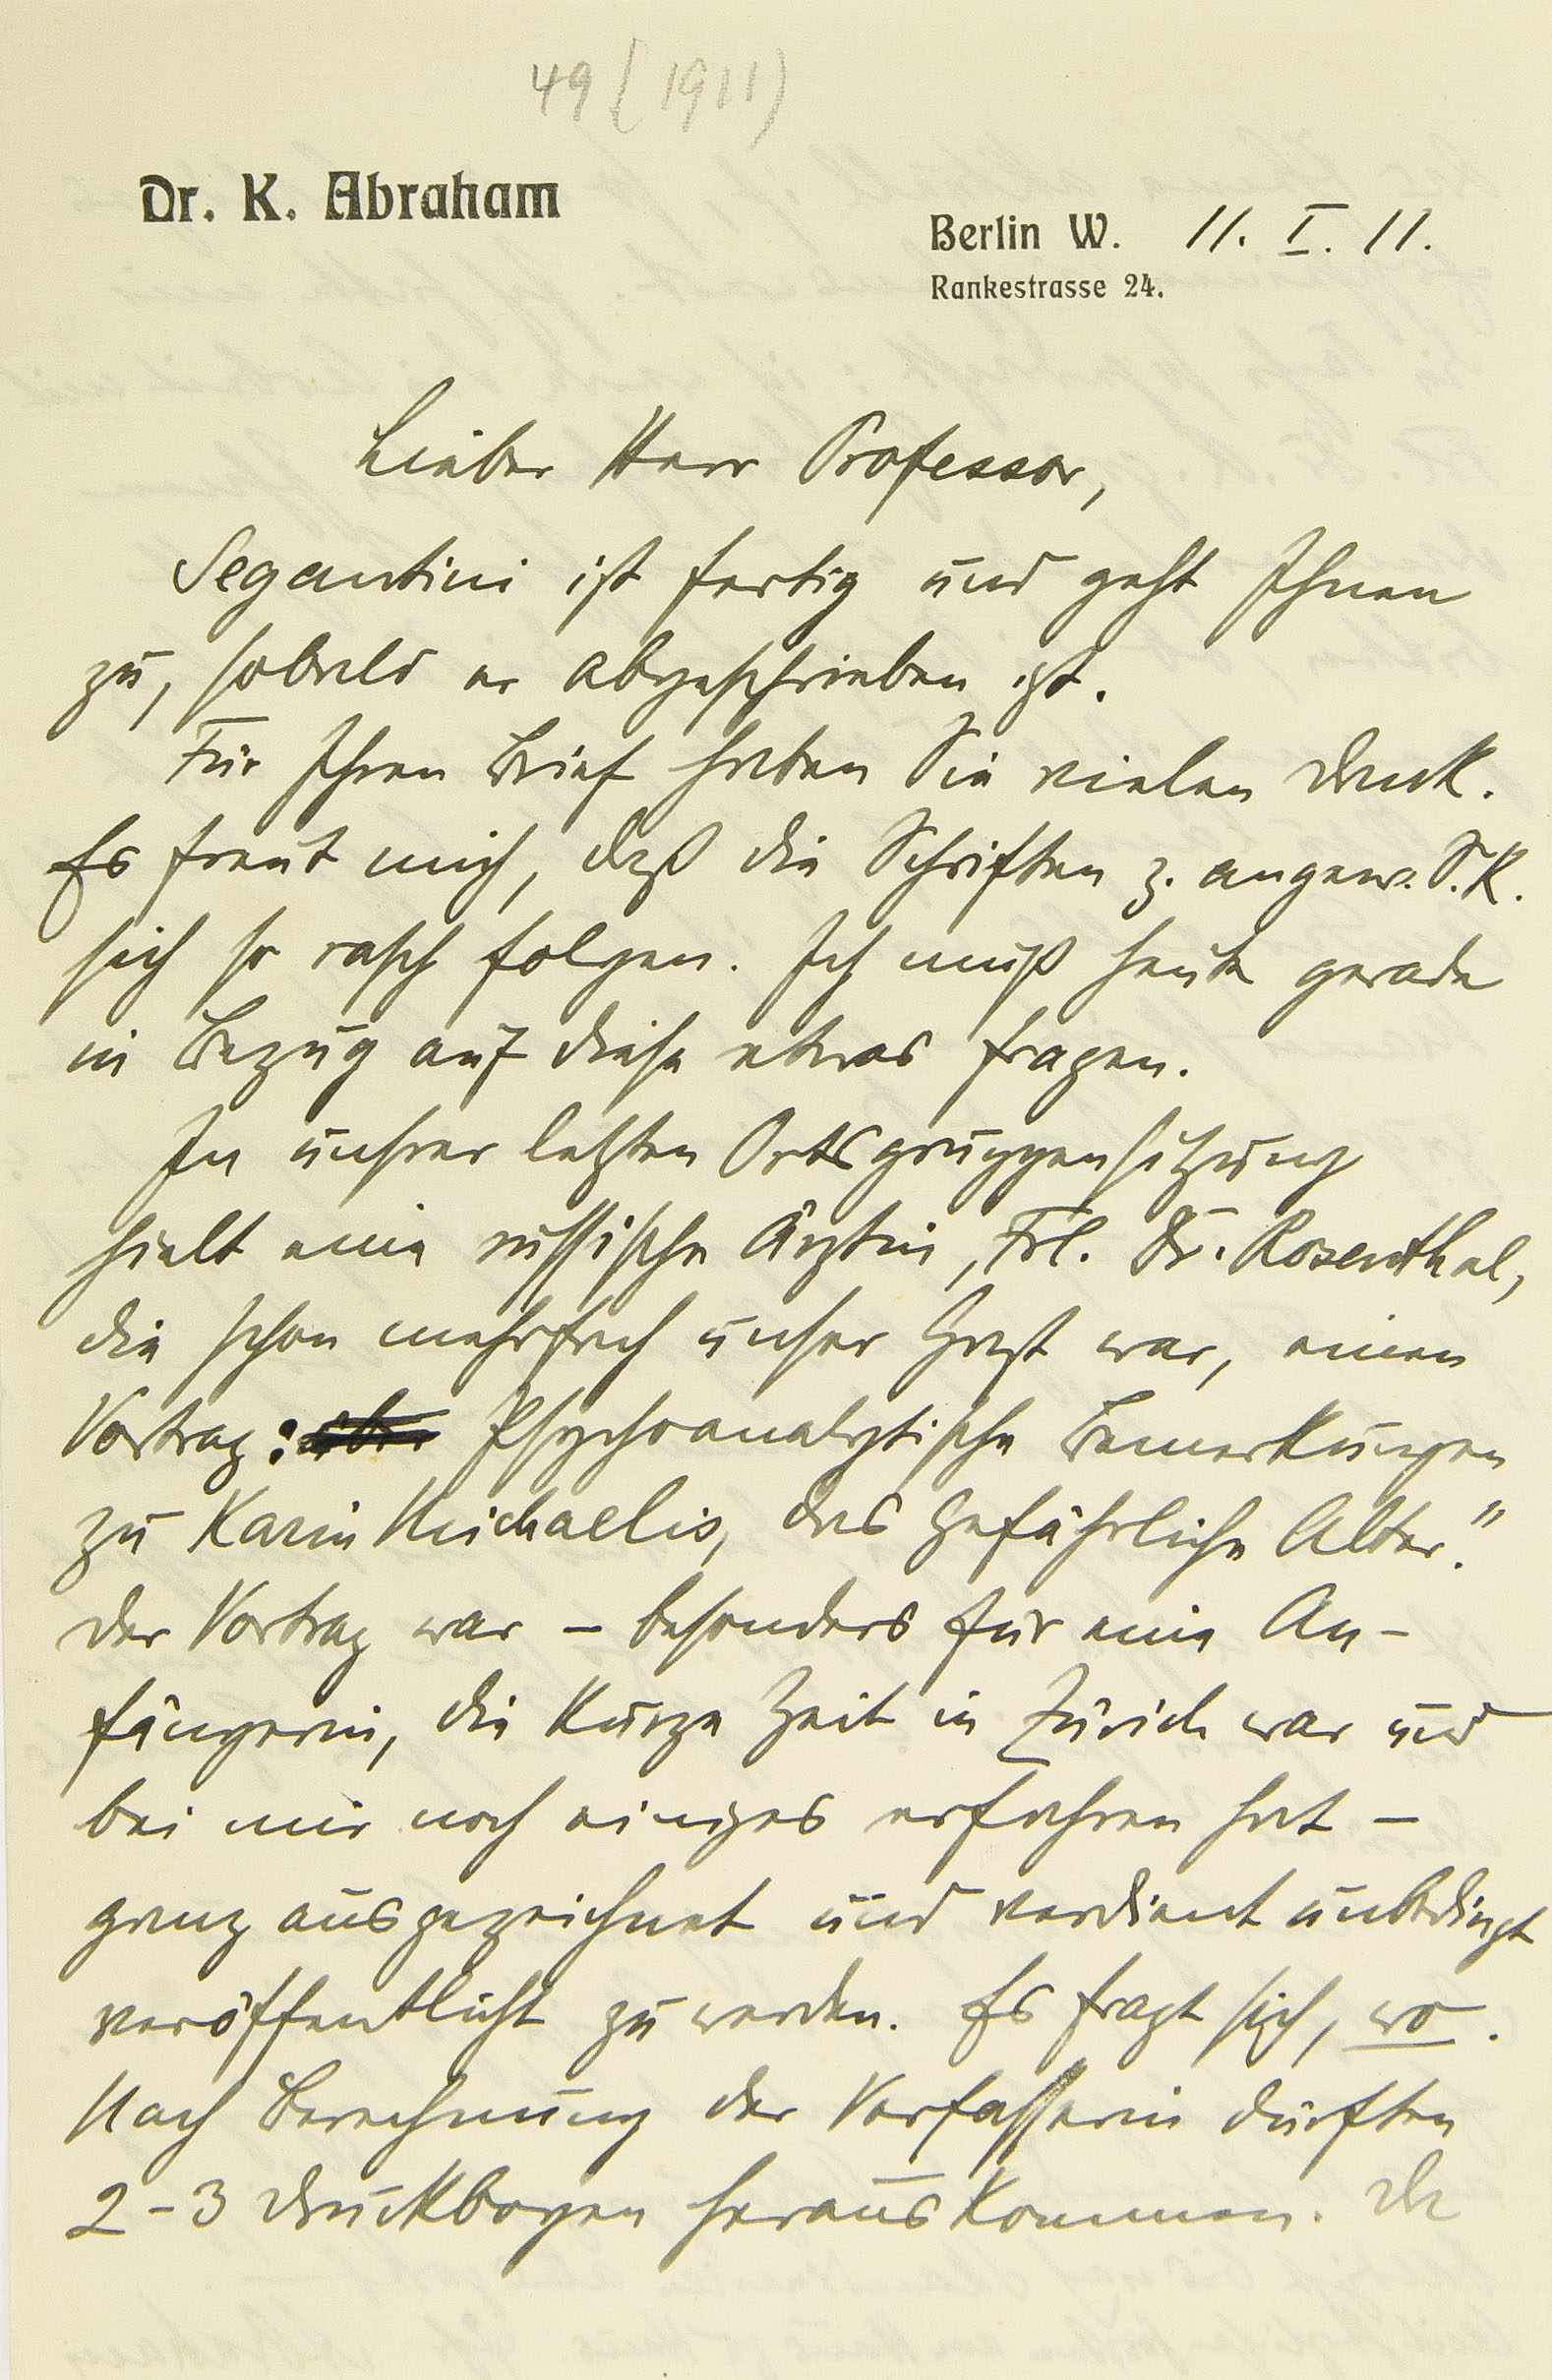 49 (1911)
Dr. K. Abraham
Berlin W. 11. I. 11.
Rankestrasse 24.
Lieber Herr Professor,
Segantini ist fertig und geht Ihnen
zu, sobald er abgeschrieben ist.
Für Ihren Brief haben Sie vielen Dank.
Es freut mich, daß die Schriften z. angew. S.K.
sich so rasch folgen. Ich muß heute gerade
in Bezug auf diese etwas fragen.
In unsrer letzten Ortsgruppensitzung
hielt eine russische Ärztin, Frl. Dr. Rosenthal,
die schon mehrfach unser Gast war, einen
Vortrag: Psychoanalytische Bemerkungen
zu Karin Michaelis, das gefährliche Alter."
Der Vortrag war – besonders für eine An-
fängerin, die kurze Zeit in Zürich war und
bei mir noch einiges erfahren hat –
ganz ausgezeichnet und verdient unbedingt
veröffentlicht zu werden. Es fragt sich, wo.
Nach Berechnung der Verfasserin dürften
2–3 Druckbogen herauskommen. Da